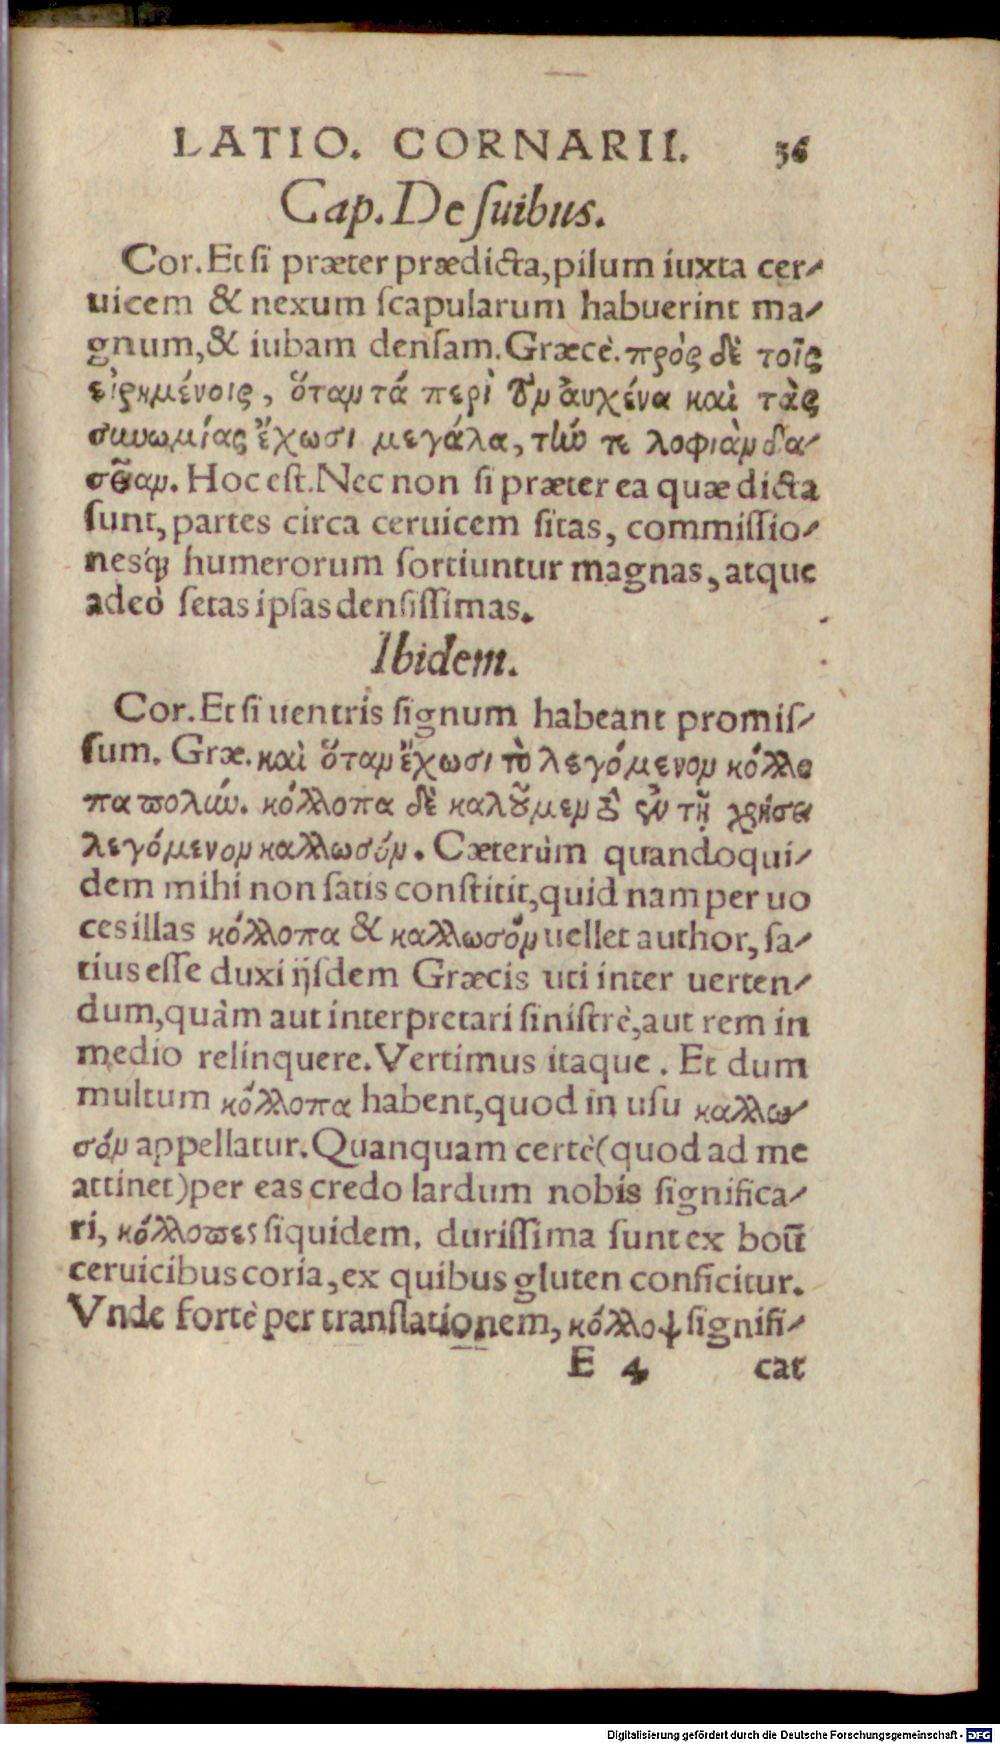 LATIO. CORNARII. 36
Cap. De ſuibus.
Cor. Et ſi præter prædicta, pilum iuxta cer-
uicem & nexum ſcapularum habuerint ma-
gnum, & iubam denſam. Græcè. πρὸς δὲ τοῖς
εἰρημένοις, ὅταν τά περὶ τὸν ἀυχένα καὶ τὰς
συνωμίας ἔχωσι μεγάλα, τήν τε λοφιὰν δα-
σεῖαν. Hoc eſt. Nec non ſi præter ea quæ dicta
ſunt, partes circa ceruicem ſitas, commiſſio-
nesq́ꝫ humerorum ſortiuntur magnas, atque
adeò ſetas ipſas denſiſſimas.
Ibidem.
Cor. Et ſi uentris ſignum habeant promiſ-
ſum. Græ. καὶ ὅταν ἔχωσι τὸ λεγόμενον κόλλο
πα πολύν. κόλλοπα δὲ καλοῦμεν τὸ ἐν τῇ χρήσει
λεγόμενον καλλωσόν. Cæterùm quandoqui-
dem mihi non ſatis conſtitit, quid nam per uo
ces illas κόλλοπα & καλλωσόν uellet author, ſa-
tius eſſe duxi ijſdem Græcis uti inter uerten-
dum, quàm aut interpretari ſiniſtrè, aut rem in
medio relinquere. Vertimus itaque. Et dum
multum κόλλοπα habent, quod in uſu καλλω-
σόν appellatur. Quanquam certè (quod ad me
attinet) per eas credo lardum nobis ſignifica-
ri, κόλλοπες ſiquidem, duriſſima ſunt ex boũ
ceruicibus coria, ex quibus gluten conficitur.
Vnde fortè per tranſlationem, κόλλοψ ſignifi-
E 4 cat
Digitalisierung gefördert durch die Deutsche Forschungsgemeinschaft - DFG